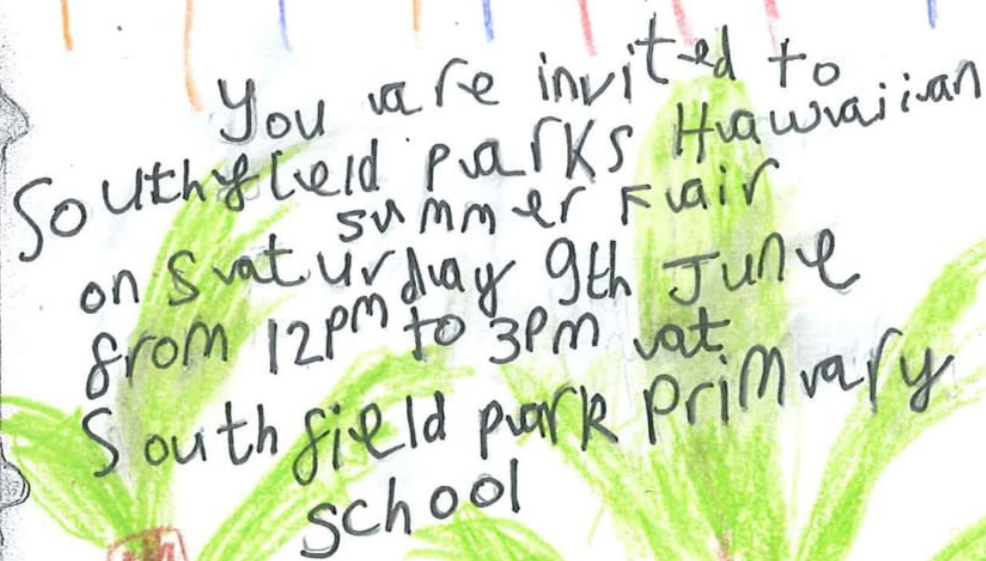 You are invited to
Southfield parks Hawaiian
summer Fair
on Saturday 9th June
from 12pm to 3pm at
Southfield park primary
school